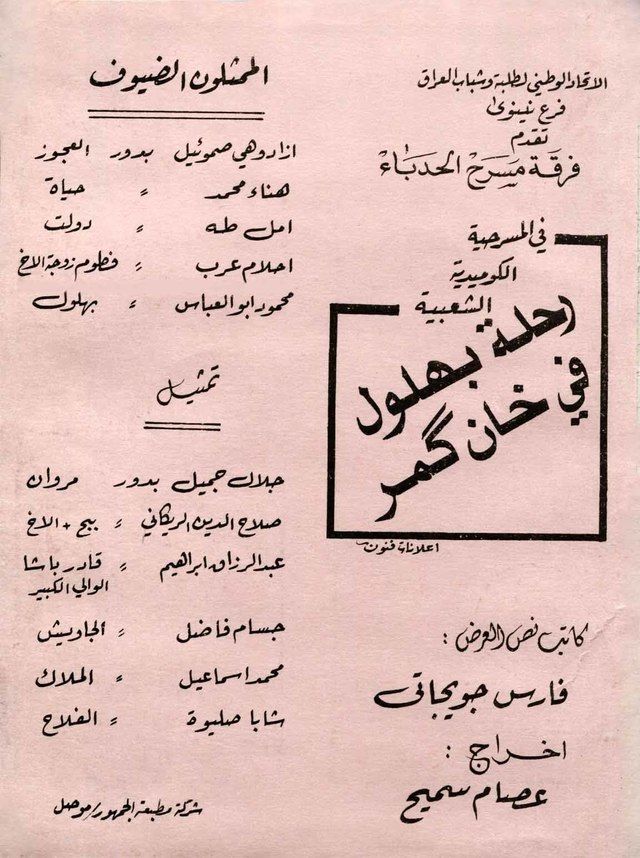 الاتحاد الوطني لطلبة وشباب العراق
فرع نينوى
تقدم
فرقة مسرح الحدباء
في المسرحية
الكوميدية
الشعبية
رحلة بهلول
في خان گمر
اعلانات فنون
كاتب نص العرض :
فارس جويجاتي
اخراج :
عصام سميح
الممثلون الضيوف
ازادوهي صموئيل بدور العجوز
هناء محمد = حياة
امل طه = دولت
احلام عرب = فطوم زوجة الاخ
محمود ابو العباس = بهلول
تمثيل
جلال جميل بدور مروان
صلاح الدين الريكاني = بيج + الاخ
عبد الرزاق ابراهيم = قادر باشا
الوالي الكبير
حسام فاضل = الجاويش
محمد اسماعيل = الملاك
شابا صليوة = الفلاح
شركة مطبعة الجمهور/موصل